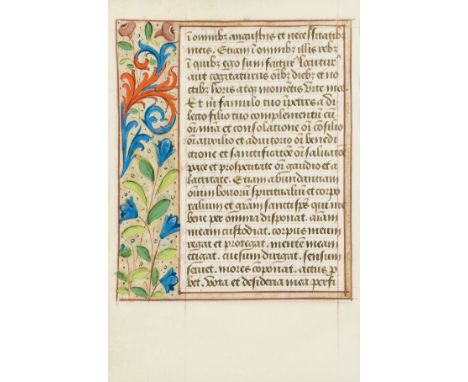 i omnibꝫ angustiis et necessitatibꝫ
meis. Et iam ĩ omnibꝫ illis rebꝫ
ĩ quibꝫ ego sum factur' locutur'
aut cogitaturus oĩbꝫ diebꝫ et no
ctibꝫ horis atqꝫ momẽtis vite mee
Et m famulo tuo ĩpetres a di
lecto filio tuo complementũ cũ
oĩ mĩa et consolatione oĩ cõsilio
oĩ auxilio et adiutorio oĩ benedi
ctione et sanctificatõe oĩ saluatõe
pace et prosperitate oĩ gaudio et a
lacritate. Etiam abundantiam
oĩum bonorum spiritualiũ et corpo
ralium et grãm sancti spũs qui me
bene per omnia disponat. aĩam
meam custodiat. corpus meum
regat et protegat. mentẽ meam
erigat. cursum dirigat. sensum
seruet. mores cõponat. actus p
bet. vota et desideria mea perfi